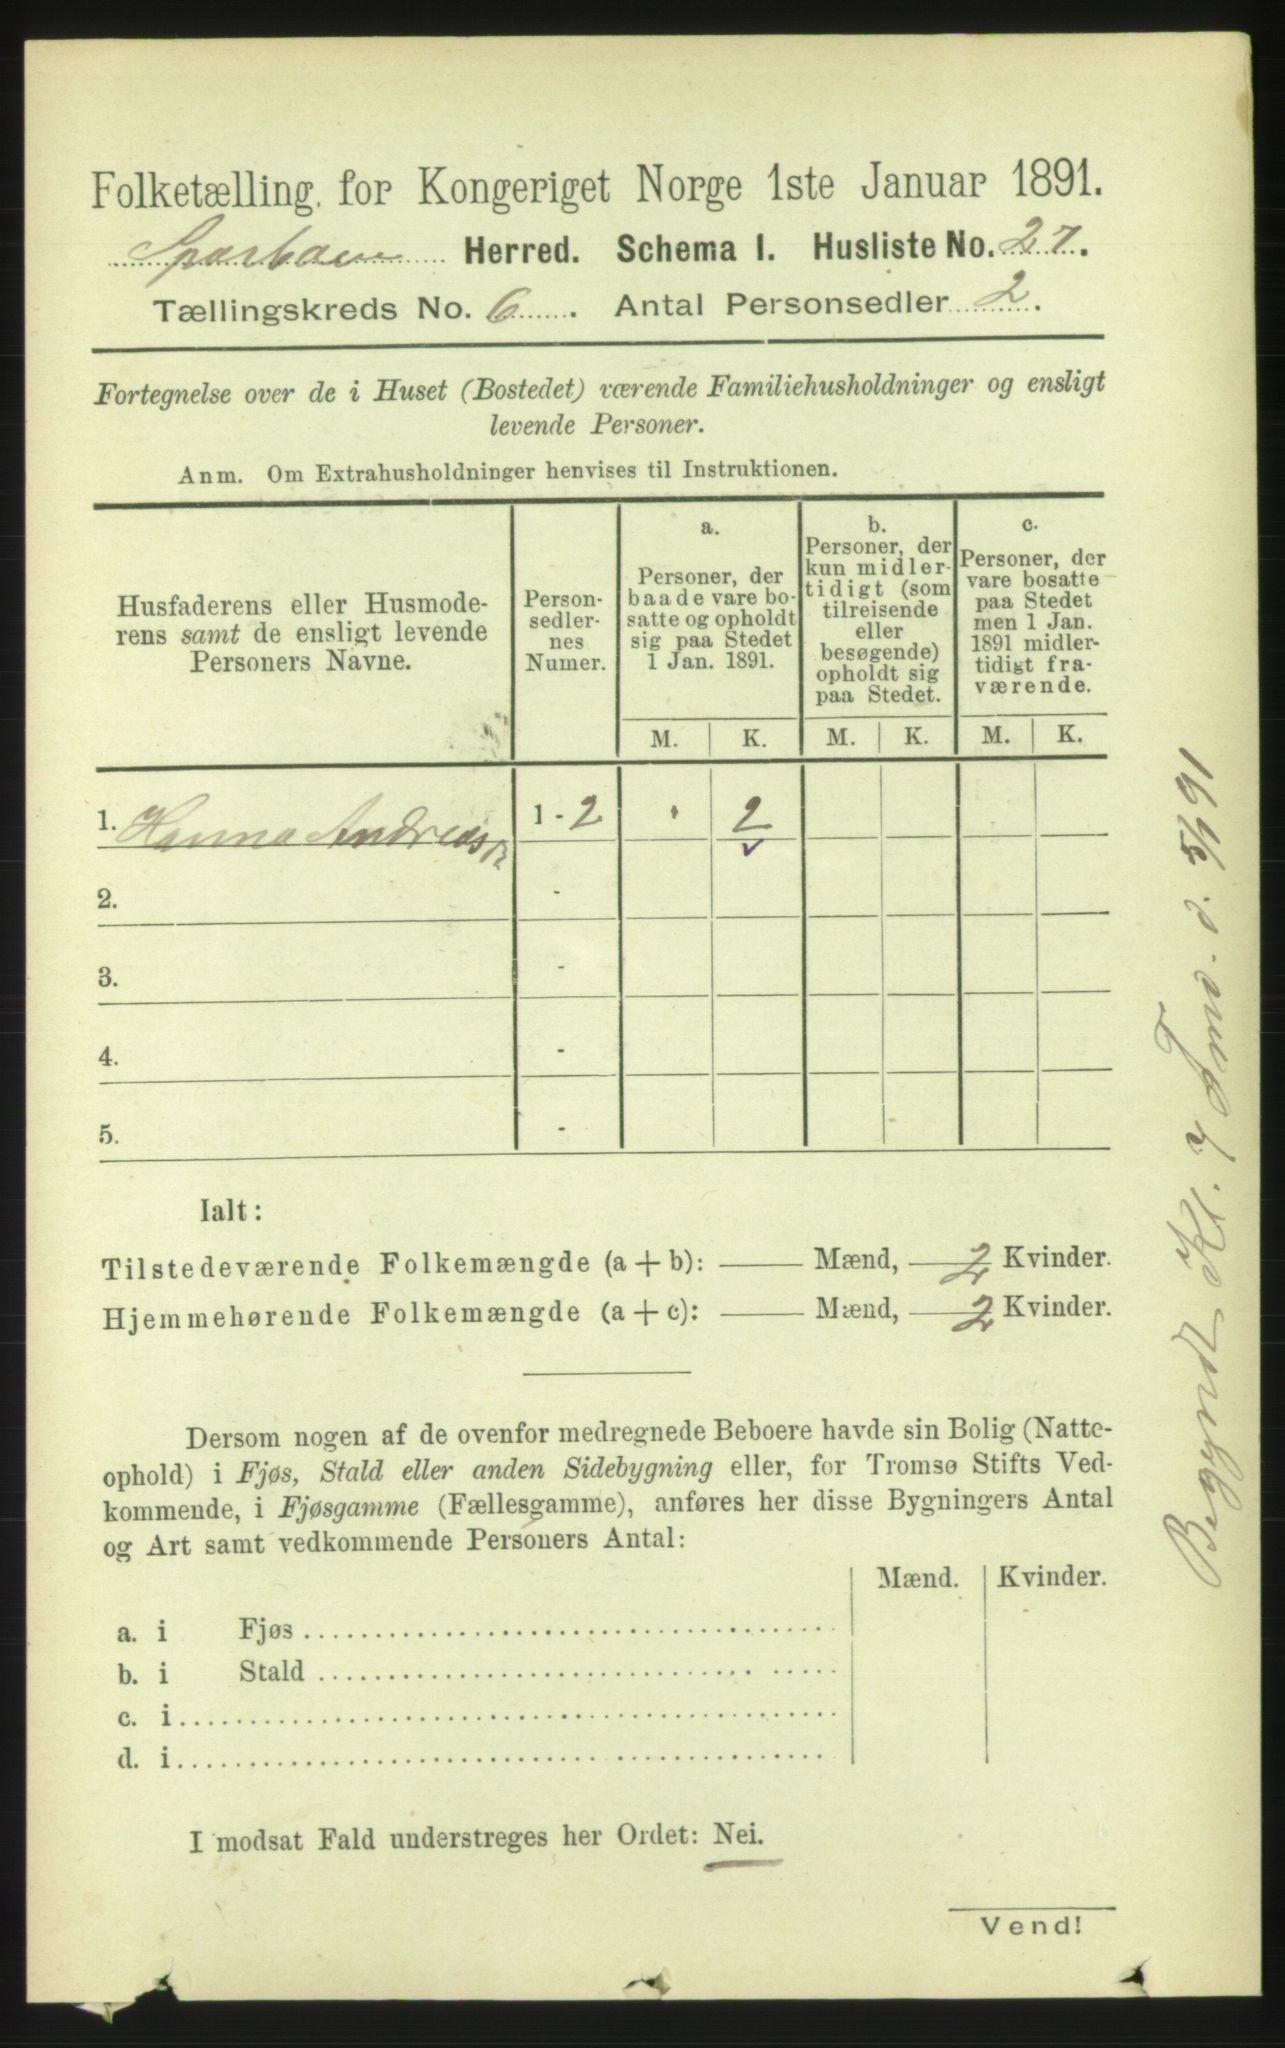 Folketælling for Kongeriget Norge 1ste Januar 1891.
Sparbuen Herred. Schema I. Husliste No. 27.
Tællingskreds No. 6. Antal Personsedler 2.
Fortegnelse over de i Huset (Bostedet) værende Familiehusholdninger og ensligt
levende Personer.
Anm. Om Extrahusholdninger henvises til Instruktionen.
Husfaderens eller Husmode-
rens samt de ensligt levende
Personers Navne.
Person-
sedler-
nes
Numer.
a.
Personer, der
baade vare bo-
satte og opholdt
sig paa Stedet
1 Jan. 1891.
b.
Personer, der
kun midler-
tidigt (som
tilreisende
eller
besøgende)
opholdt sig
paa Stedet.
c.
Personer, der
vare bosatte
paa Stedet
men 1 Jan.
1891 midler-
tidigt fra-
værende.
M. K. M. K. M. K.
1. Hanna Andreasdr 1 - 2 2
2. -
3. -
4. -
5. -
Ialt:
Tilstedeværende Folkemængde (a + b): Mænd, 2 Kvinder.
Hjemmehørende Folkemængde (a + c): Mænd, 2 Kvinder.
Dersom nogen af de ovenfor medregnede Beboere havde sin Bolig (Natte-
ophold) i Fjøs, Stald eller anden Sidebygning eller, for Tromsø Stifts Ved-
kommende, i Fjøsgamme (Fællesgamme), anføres her disse Bygningers Antal
og Art samt vedkommende Personers Antal:
Mænd. Kvinder.
a. i Fjøs
b. i Stald
c. i
d. i
I modsat Fald understreges her Ordet: Nei.
Vend!
Begyndt Kl. 7 Fmd. d. 5/1 91